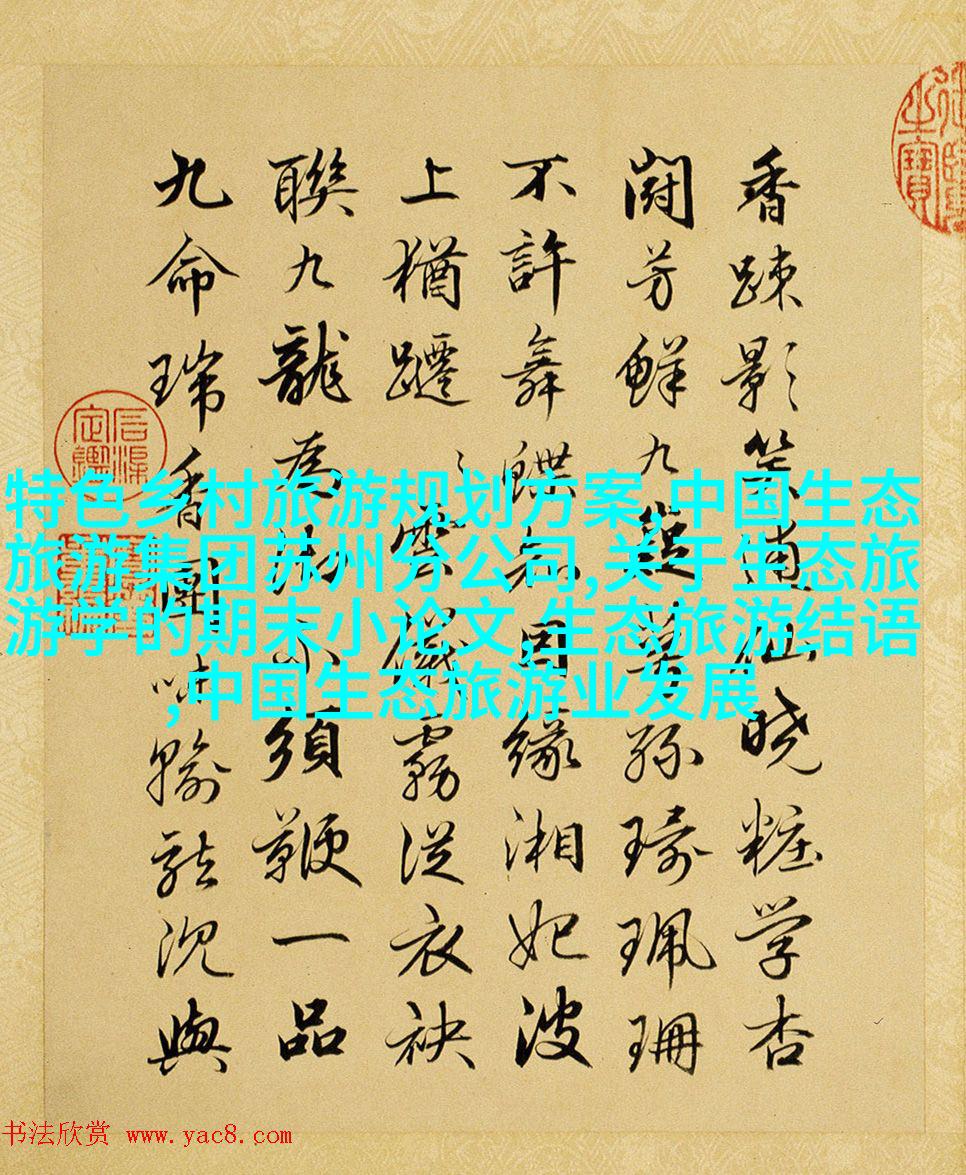 香踈影笑逋仙晓粧学杏
鬪芳鮮九孫琦珮珊
不許舞蝶無因緣湘妃波
上猶躚霧從衣袂
聯九龍為不須鞭一品
九命瑞香輸龍沉與
特色乡村旅游规划方案,中国生态
旅游集团苏州分公司,关于生态旅
游学的期末小论文,生态旅游结语
,中国生态旅游业发展
书法欣赏 www.yac8.com